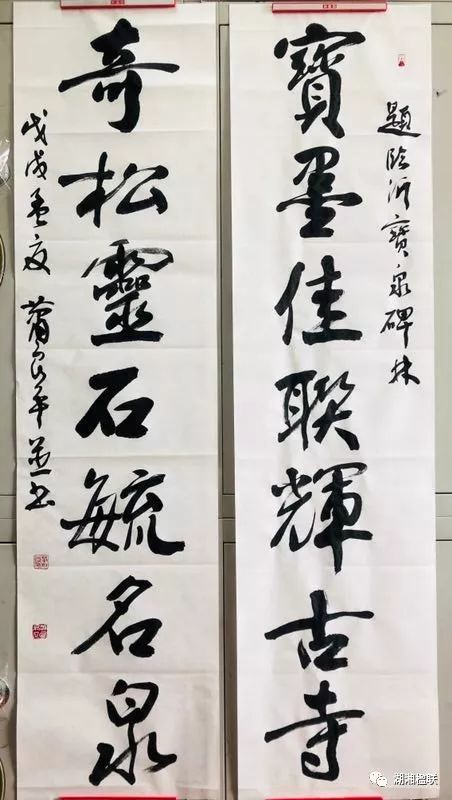 題臨沂寶泉碑林
寶墨佳聯輝古寺
奇松靈石毓名泉
戊戌孟夏 蕭良平並书
湖湘楹联